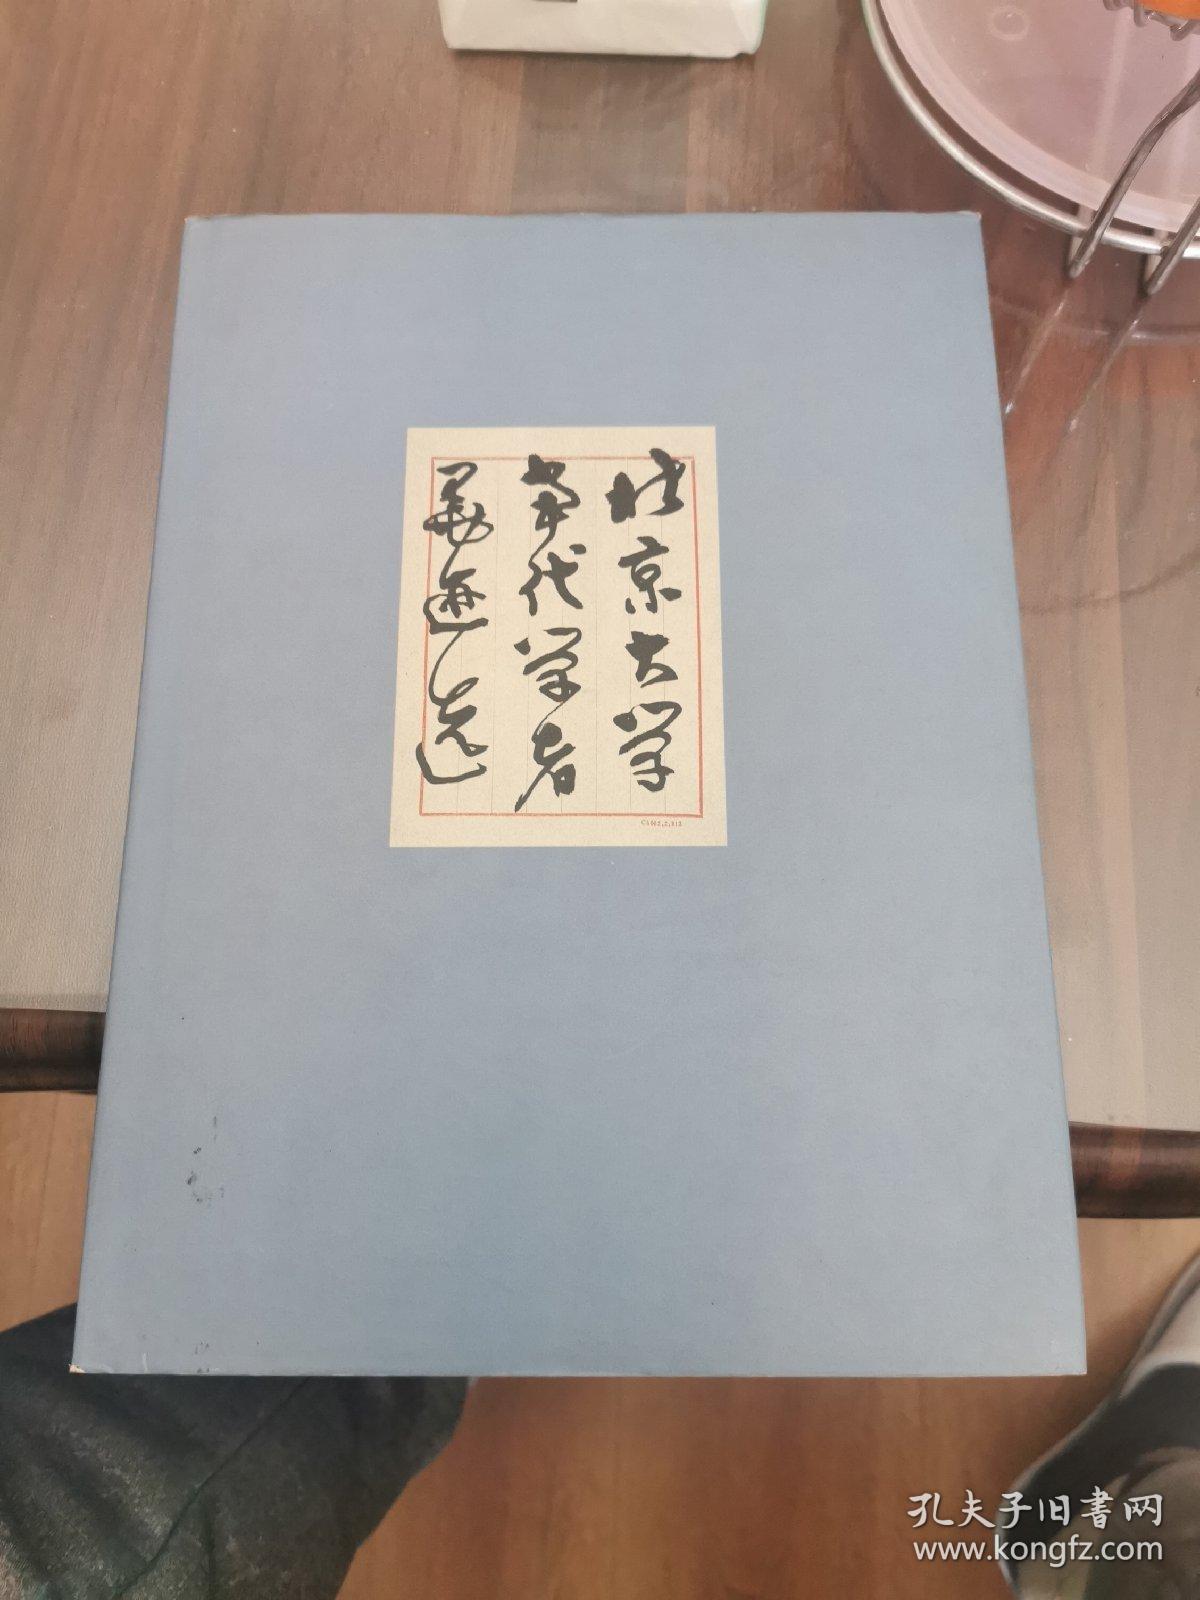 北京大学
当代学者
墨迹选
孔夫子旧書网
www.kongfz.com